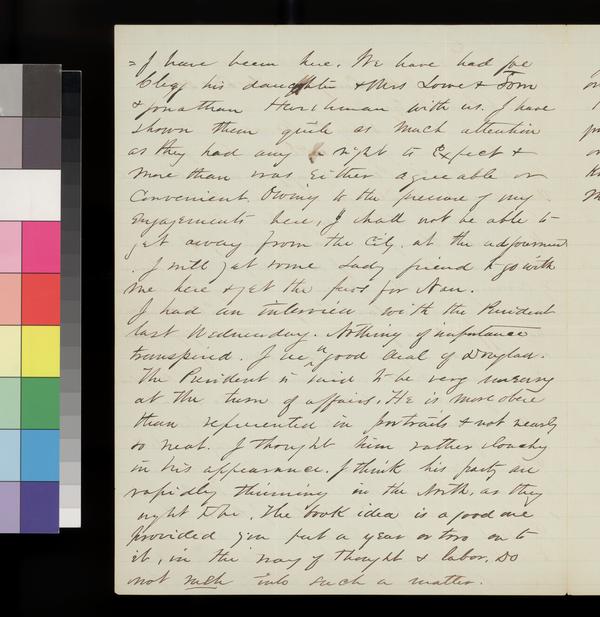 = I have been here. We have had Joe
Clegg his daughter & Mrs Lowe & Tom
& Jonathan Harshman with us. I have
shown them quite as much attention
as they had any right to Expect &
more than was Either agreeable or
Convenient. Owing to the pressure of my
Engagements here, I shall not be able to
get away from the City. at the adjournment
. I will get some Lady friend to go with
me here & get the furs for Nan.
I had an interview with the President
last Wednesday. Nothing of importance
transpired. I see a good deal of Douglas.
The President is said to be very uneasy
at the turn of affairs. He is more obese
than represented in portraits & not nearly
so neat. I thought him rather slouchy
in his appearance. I think his party are
rapidly thinning in the North, as they
ought to be. The book idea is a good one
provided you put a year or two on to
it, in the way of thought & labor. Do
not rush into such a matter.